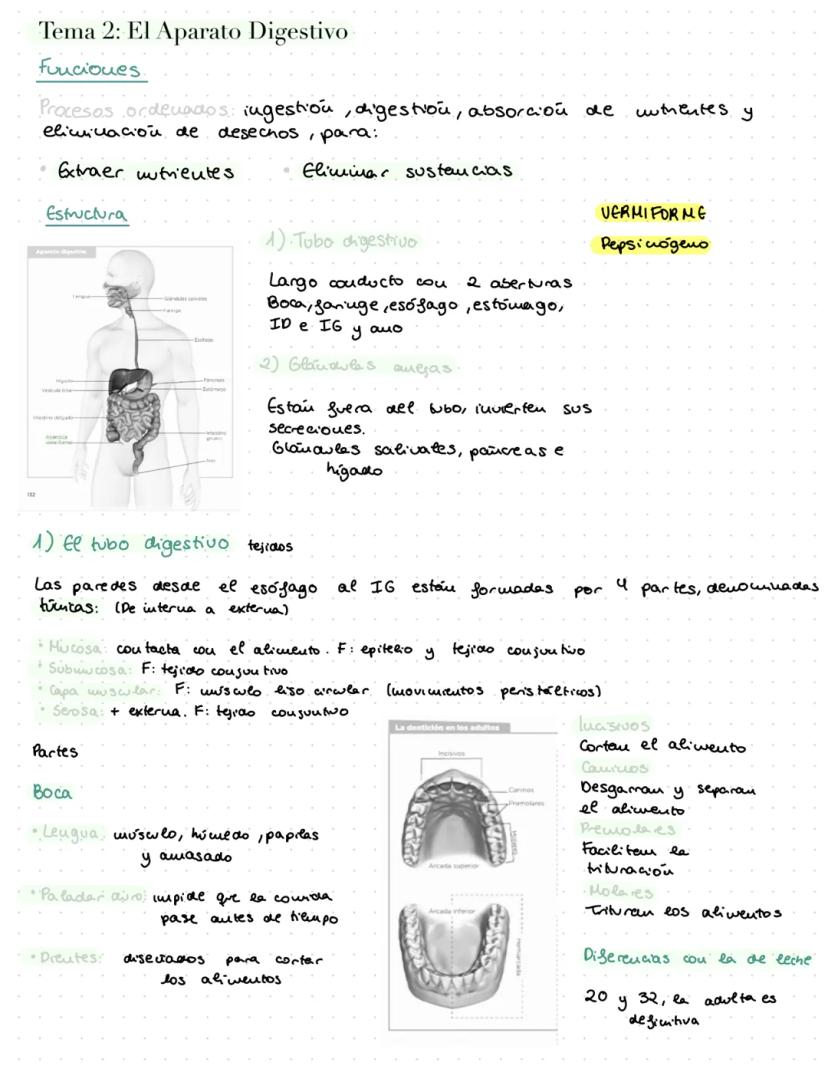 Tema 2: El Aparato Digestivo
Funciones
Procesos ordenados: ingestión, digestión, absorción de nutrientes y
eliminación de desechos, para:
• Extraer nutrientes
• Eliminar sustancias
Estructura
VERMIFORME
Pepsinógeno
1) Tubo digestivo
Largo conducto con 2 aberturas
Boca, faringe, esófago, estómago,
ID e IG y ano
2) Glándulas anejas
Están fuera del tubo, invierten sus
secreciones.
Glándulas salivales, páncreas e
hígado
Aparato digestivo
Lengua
Glándulas salivales
Faringe
Esófago
Hígado
Páncreas
Vesícula biliar
Estómago
Intestino delgado
Intestino
grueso
Apéndice
vermiforme
Ano
132
1) El tubo digestivo tejidos
Las paredes desde el esófago al IG están formadas por 4 partes, denominadas
túnicas: (De interna a externa)
• Mucosa: contacta con el alimento. F: epitelio y tejido conjuntivo
• Submucosa: F: tejido conjuntivo
• Capa muscular: F: músculo liso circular (movimientos peristálticos)
• Serosa: + externa. F: tejido conjuntivo
Partes
Boca
• Lengua: músculo, húmedo, papilas
y amasado
• Paladar duro: impide que la comida
pase antes de tiempo
• Dientes: diseñados para cortar
los alimentos
La dentición en los adultos
Incisivos
Caninos
Premolares
Molares
Arcada superior
Arcada inferior
Hemiarcada
Incisivos
Cortan el alimento
Caninos
Desgarran y separan
el alimento
Premolares
Facilitan la
trituración
• Molares
Trituran los alimentos
Diferencias con la de leche
20 y 32, la adulta es
definitiva